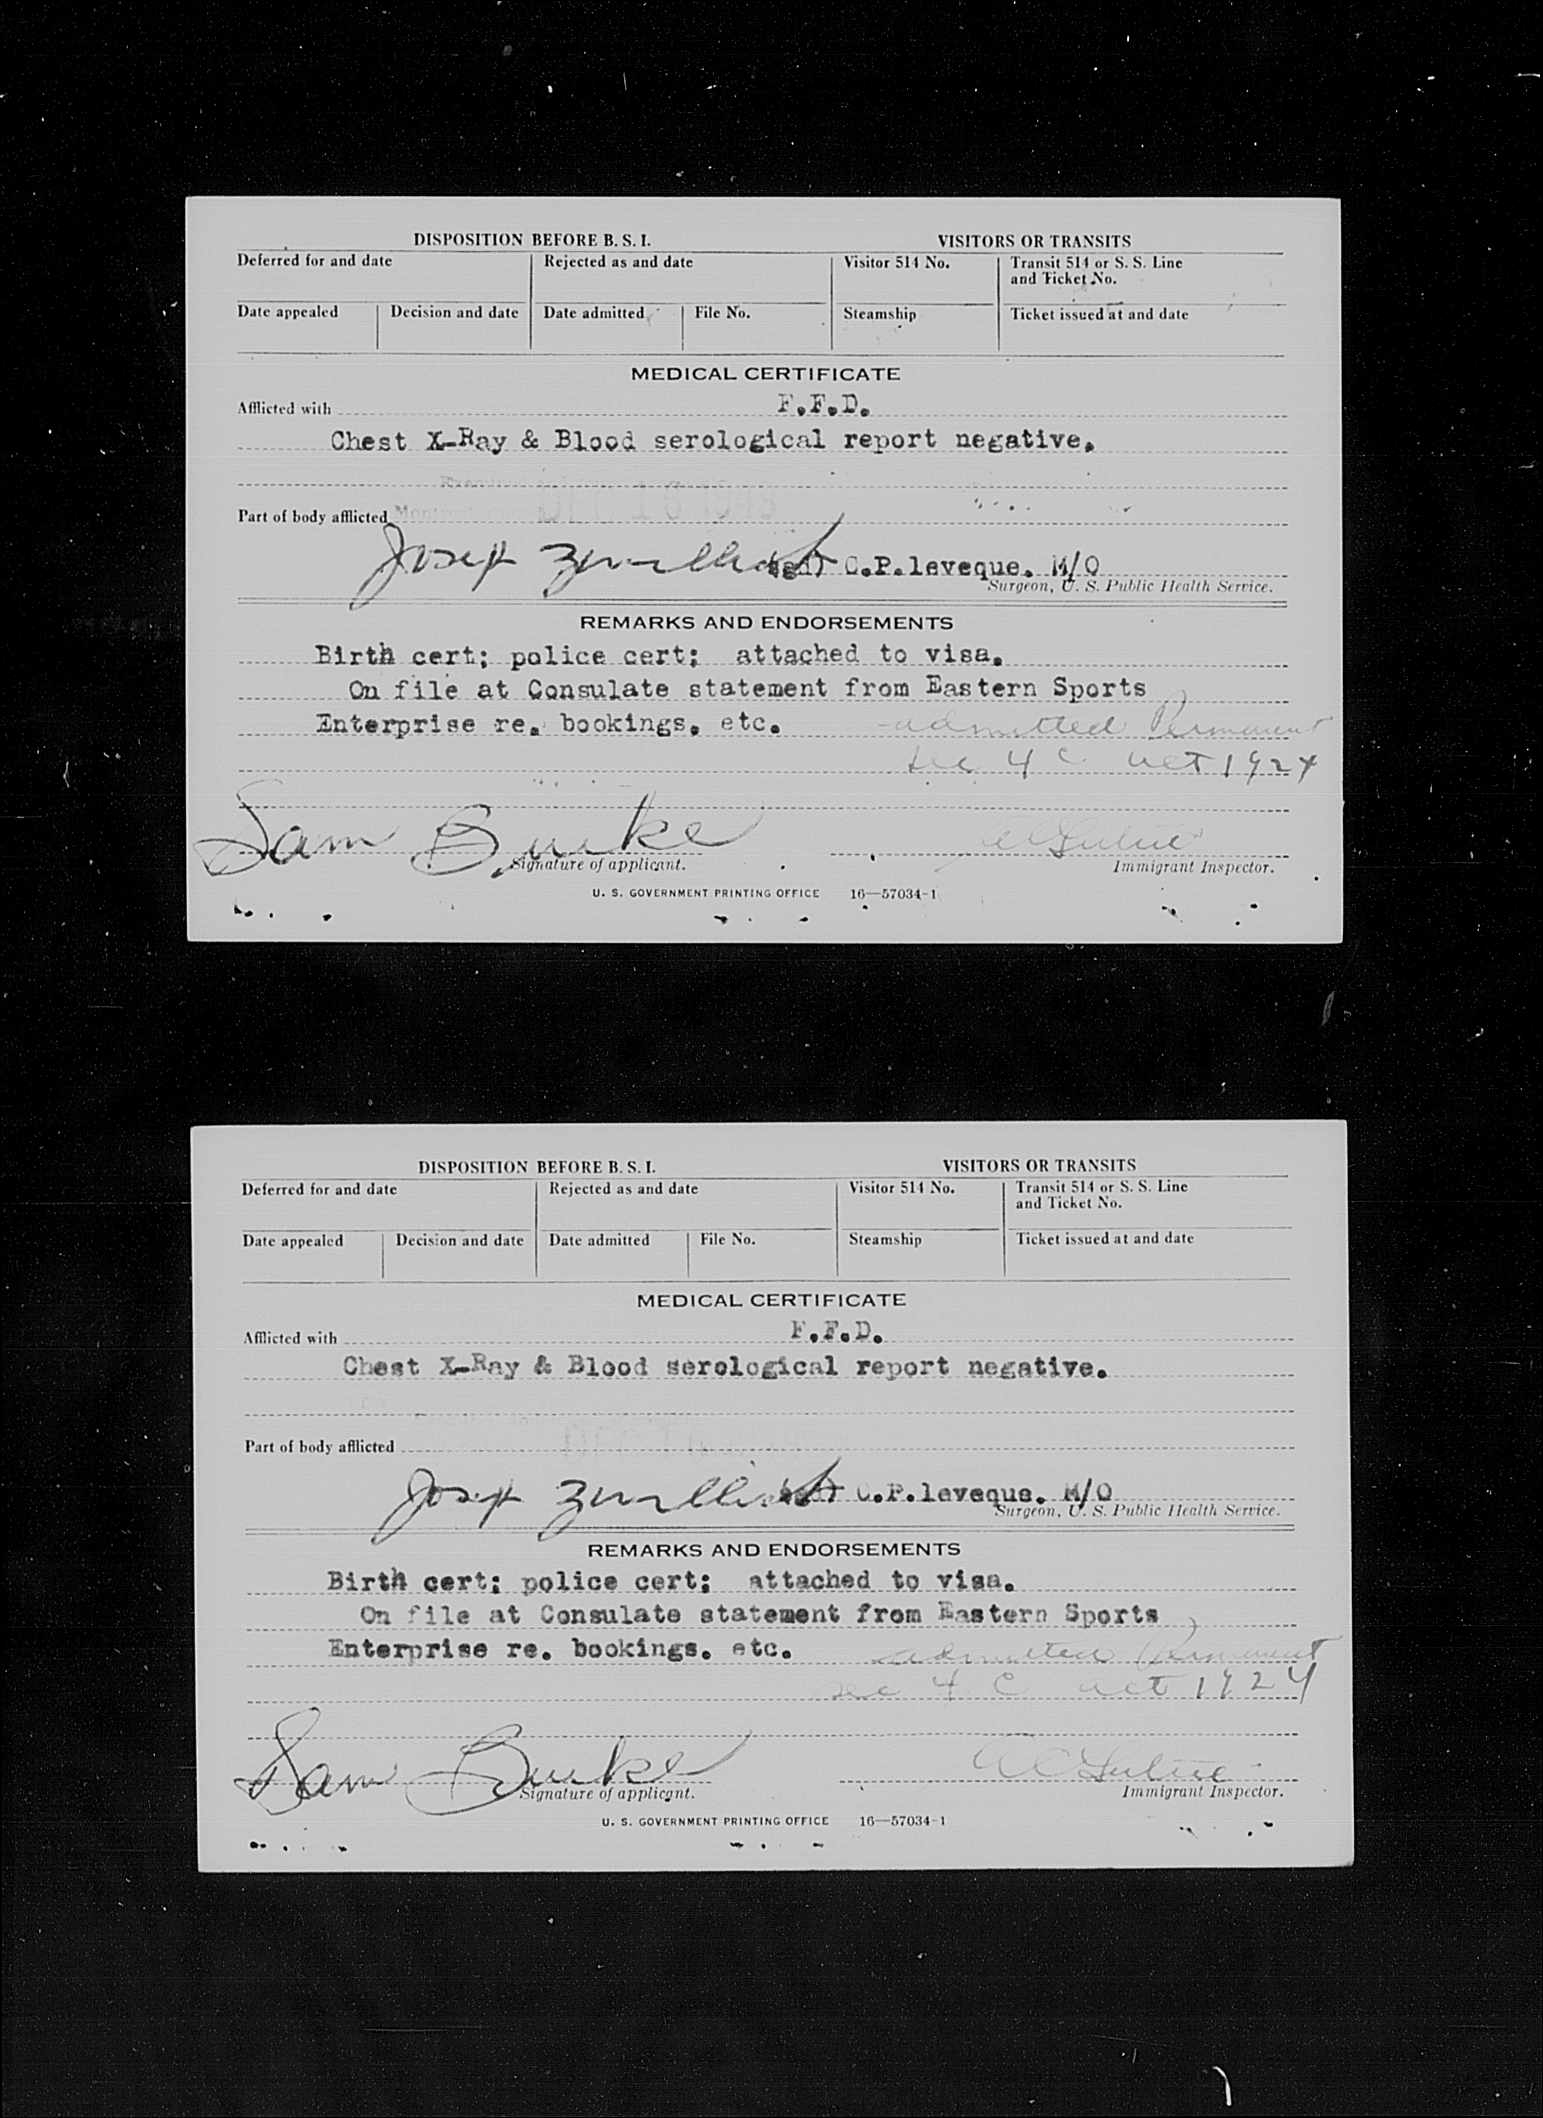 DISPOSITION BEFORE B. S. I. VISITORS OR TRANSITS
Deferred for and date Rejected as and date Visitor 514 No. Transit 514 or S. S. Line
and Ticket No.
Date appealed Decision and date Date admitted File No. Steamship Ticket issued at and date
MEDICAL CERTIFICATE
Afflicted with F.F.D.
Chest X-Ray & Blood serological report negative.
Part of body afflicted
(sgd) C.P.leveque. M/O
Surgeon, U. S. Public Health Service.
REMARKS AND ENDORSEMENTS
Birth cert; police cert; attached to visa.
On file at Consulate statement from Eastern Sports
Enterprise re. bookings. etc. admitted Permanent
sec 4 c act 1924
Sam Burke
Signature of applicant. Immigrant Inspector.
U. S. GOVERNMENT PRINTING OFFICE 16—57034-1
DISPOSITION BEFORE B. S. I. VISITORS OR TRANSITS
Deferred for and date Rejected as and date Visitor 514 No. Transit 514 or S. S. Line
and Ticket No.
Date appealed Decision and date Date admitted File No. Steamship Ticket issued at and date
MEDICAL CERTIFICATE
Afflicted with F.F.D.
Chest X-Ray & Blood serological report negative.
Part of body afflicted
(sgd) C.P.leveque. M/O
Surgeon, U. S. Public Health Service.
REMARKS AND ENDORSEMENTS
Birth cert; police cert; attached to visa.
On file at Consulate statement from Eastern Sports
Enterprise re. bookings. etc. admitted Permanent
sec 4 C act 1924
Sam Burke
Signature of applicant. Immigrant Inspector.
U. S. GOVERNMENT PRINTING OFFICE 16—57034-1